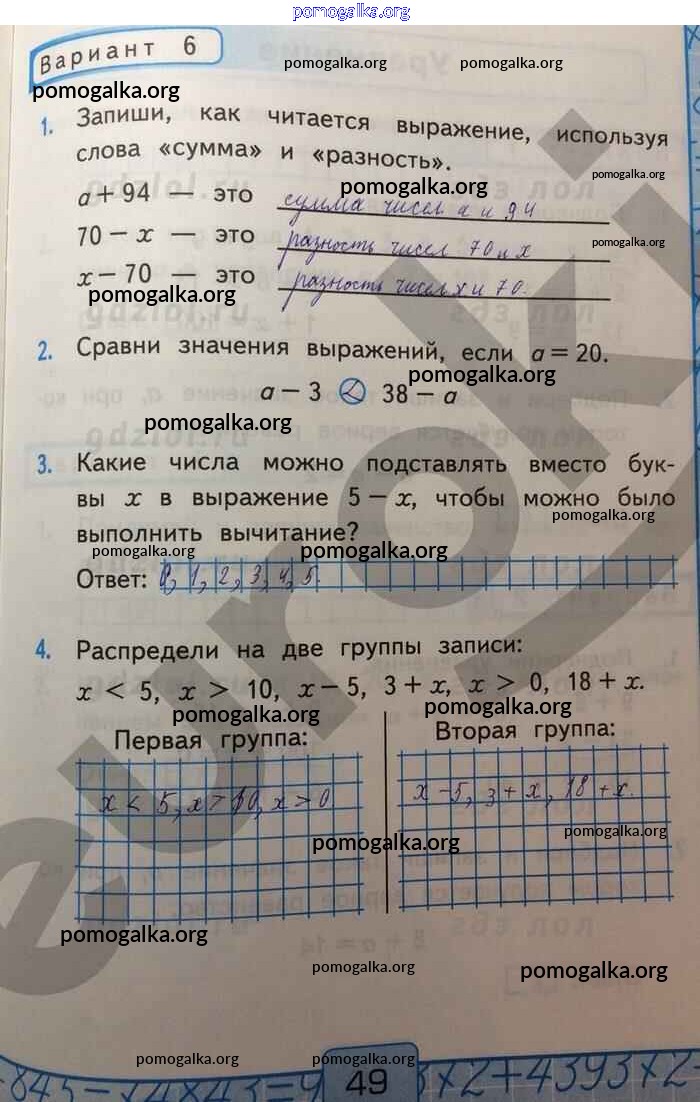 pomogalka.org
Вариант 6
pomogalka.org pomogalka.org
pomogalka.org
1. Запиши, как читается выражение, используя
слова «сумма» и «разность».
pomogalka.org
pomogalka.org
a + 94 — это сумма чисел a и 94
70 − x — это разность чисел 70 и x
pomogalka.org
x − 70 — это разность чисел x и 70.
pomogalka.org
2. Сравни значения выражений, если a = 20.
pomogalka.org
a − 3 < 38 − a
pomogalka.org
3. Какие числа можно подставлять вместо бук-
вы x в выражение 5 − x, чтобы можно было
pomogalka.org
выполнить вычитание?
pomogalka.org pomogalka.org
Ответ: 0, 1, 2, 3, 4, 5.
4. Распредели на две группы записи:
x < 5, x > 10, x − 5, 3 + x, x > 0, 18 + x.
pomogalka.org pomogalka.org
Первая группа: Вторая группа:
x < 5, x > 10, x > 0 x − 5, 3 + x, 18 + x.
pomogalka.org
pomogalka.org
pomogalka.org
pomogalka.org
pomogalka.org
pomogalka.org pomogalka.org
49
euroki